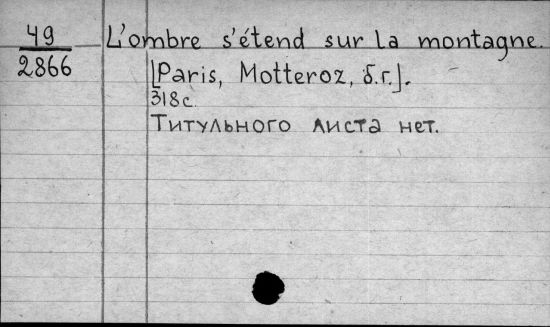 49
2866
L'ombre s'étend sur la montagne.
[Paris, Motteroz, б.г.].
318 с.
Титульного листа нет.